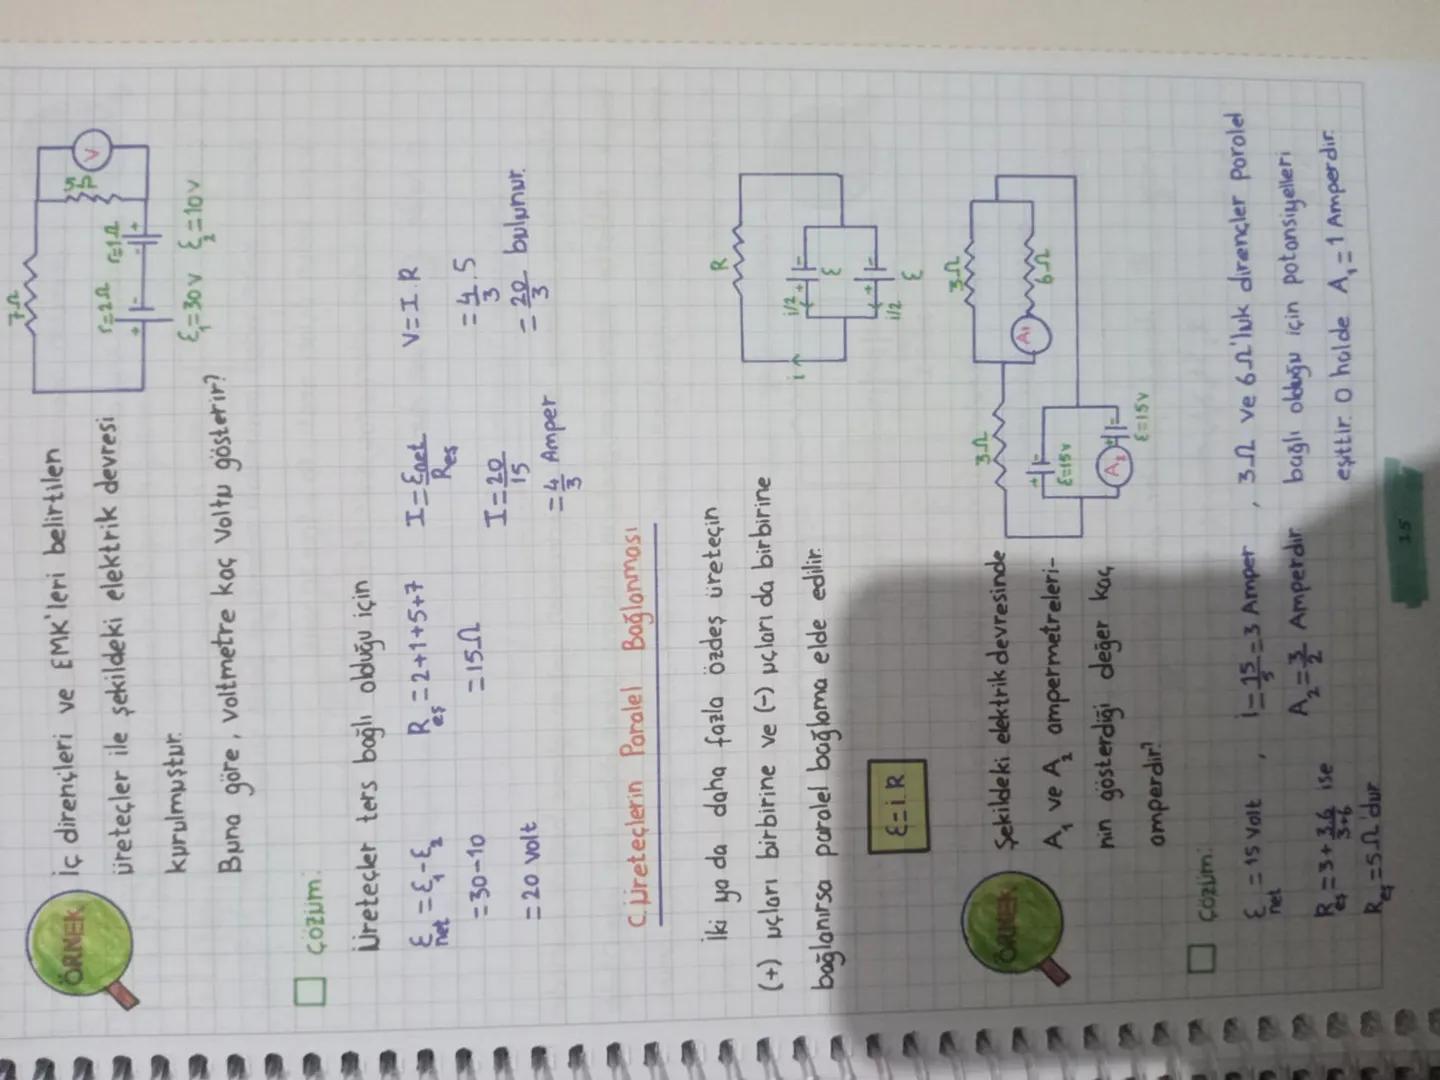 ÖRNEK
İç dirençleri ve EMK'leri belirtilen
üreteçler ile şekildeki elektrik devresi
kurulmuştur.
Buna göre, voltmetre kaç voltu gösterir?
7Ω
r=2Ω r=1Ω
5Ω
V
+ - - +
ε₁=30v ε₂=10v
Çözüm:
Üreteçler ters bağlı olduğu için
ε net = ε₁-ε₂
=30-10
=20 volt
R eş = 2+1+5+7
=15Ω
I = εnet / Reş
I = 20/15
= 4/3 Amper
V = I.R
= 4/3 . 5
= 20/3 bulunur.
C. Üreteçlerin Paralel Bağlanması
İki ya da daha fazla özdeş üretecin
(+) uçları birbirine ve (-) uçları da birbirine
bağlanırsa paralel bağlama elde edilir.
R
i
i/2 + -
ε
+ -
i/2
ε
ε=i.R
ÖRNEK
Şekildeki elektrik devresinde
A₁ ve A₂ ampermetreleri-
nin gösterdiği değer kaç
amperdir?
3Ω
3Ω
A₁
6Ω
+ -
ε=15v
A₂
+ -
ε=15v
Çözüm:
ε net = 15 volt , i = 15/5 = 3 Amper , 3Ω ve 6Ω'luk dirençler parolel
R eş = 3 + 3.6/3+6 ise A₂ = 3/2 Amperdir. bağlı olduğu için potansiyelleri
R eş = 5Ω'dur eşittir. O halde A₁ = 1 Amperdir.
25